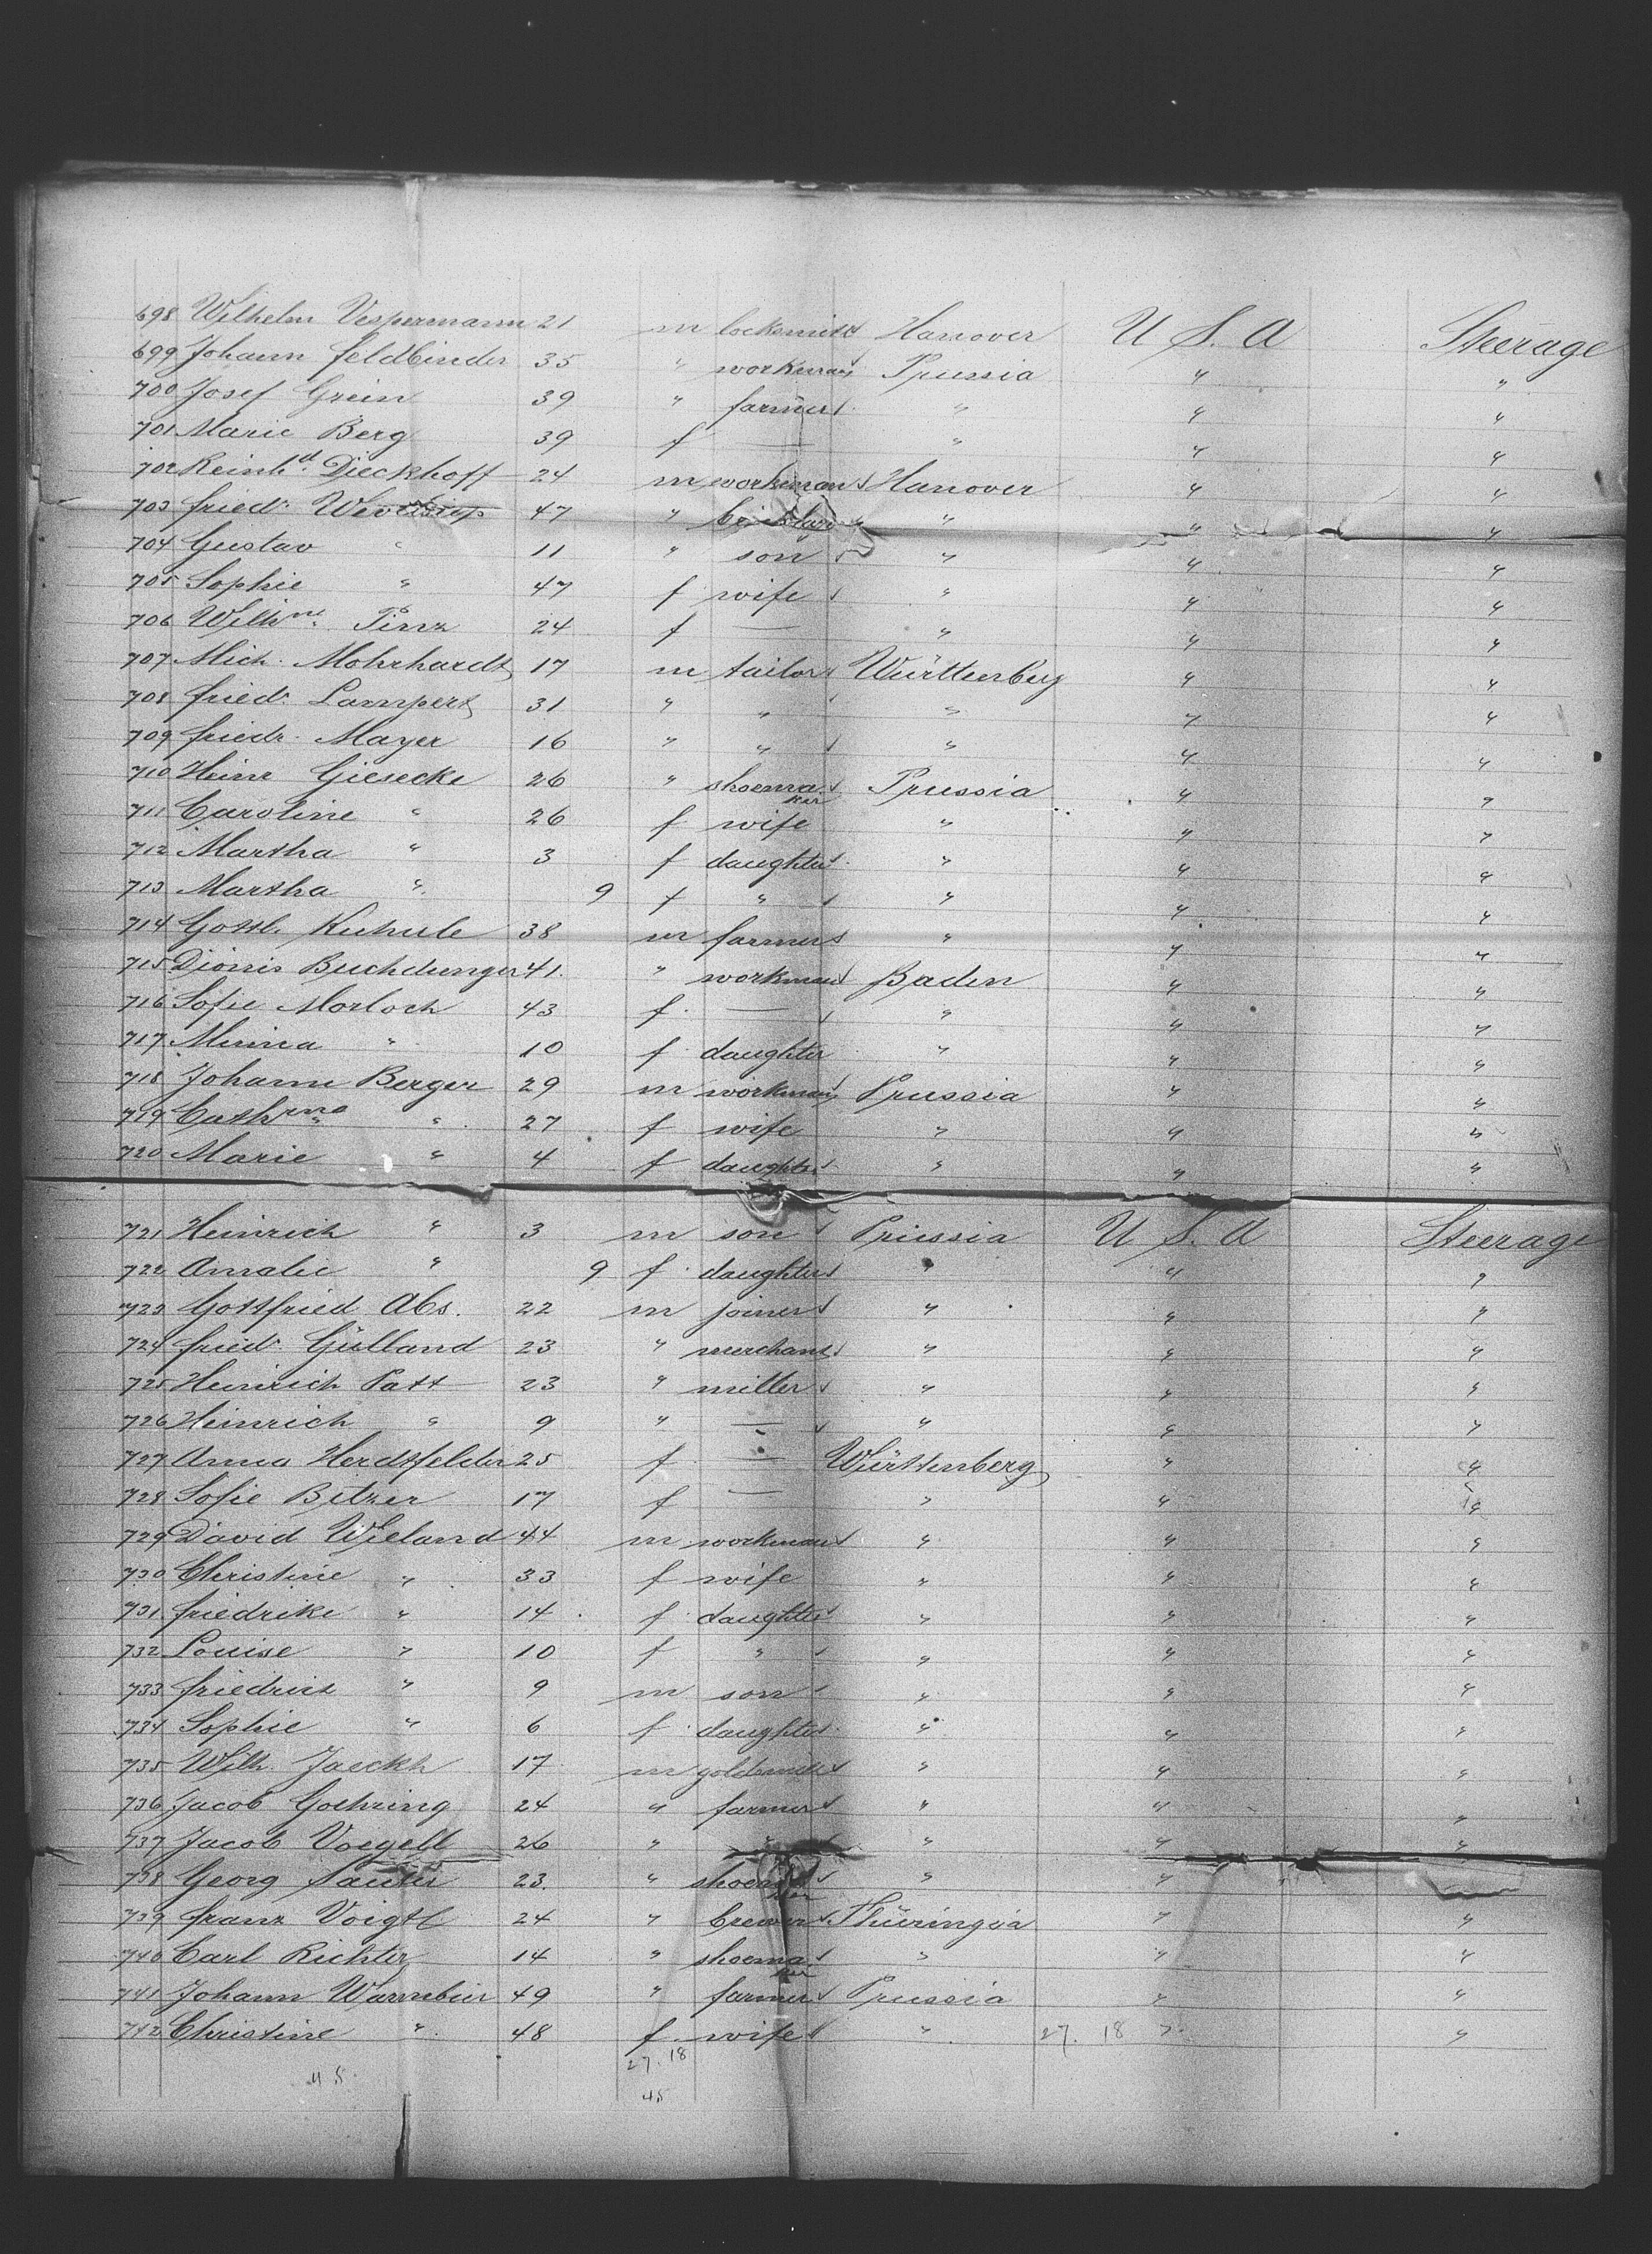 698 Wilhelm Vespermann 21 m locksmith Hanover U S. A Steerage
699 Johann Feldbinder 35 " workman Prussia " "
700 Josef Grein 39 " farmer " " "
701 Marie Berg 39 f — " " "
702 Reinh.d Dieckhoff 24 m workman Hanover " "
703 Fried. 47 " " " "
704 Gustav " 11 " son " " "
705 Sophie " 47 f wife " " "
706 Wilh.ne Pinz 24 f — " " "
707 Mich. Mohrhardt 17 m tailor Württenberg " "
708 Fried. Lampert 31 " " " " "
709 Friedr. Mayer 16 " " " " "
710 Heinr Giesecke 26 " shoemaker Prussia " "
711 Caroline " 26 f wife " " "
712 Martha " 3 f daughter " " "
713 Martha " 9 f " " " "
714 Gottl. 38 m farmer " " "
715 Dionis Buchdunger 41. " workman Baden " "
716 Sofie Morloch 43 f. — " " "
717 Minna " 10 f daughter " " "
718 Johann Berger 29 m workman Prussia " "
719 Cath.rina " 27 f wife " " "
720 Marie " 4 f daughter " " "
721 Heinrich " 3 m son Prussia U S. A Steerage
722 Amalie " 9 f. daughter " " "
723 Gottfried Abs. 22 m joiner " " "
724 Fried. Gülland 23 " merchant " " "
725 Heinrich Patt 23 " miller " " "
726 Heinrich " 9 " — " " "
727 Anna Herdtfelder 25 f — Württenberg " "
728 Sofie Bitzer 17 f — " " "
729 David Wieland 44 m workman " " "
730 Christine " 33 f wife " " "
731 Friedrike " 14 f daughter " " "
732 Louise " 10 f " " " "
733 Friedrich " 9 m son " " "
734 Sophie " 6 f. daughter " " "
735 Wilh. Jaeckh 17 m goldsmith " " "
736 Jacob Goehring 24 " farmer " " "
737 Jacob Voegell 26 " " " " "
738 Georg Sauter 23. " shoemaker " " "
739 Franz Voigtl 24 " brewer Thüringia " "
740 Carl Richter 14 " shoemaker " " "
741 Johann Warmbier 49 " farmer Prussia " "
742 Christine " 48 f. wife " 27. 18 " "
27. 18
45.
45